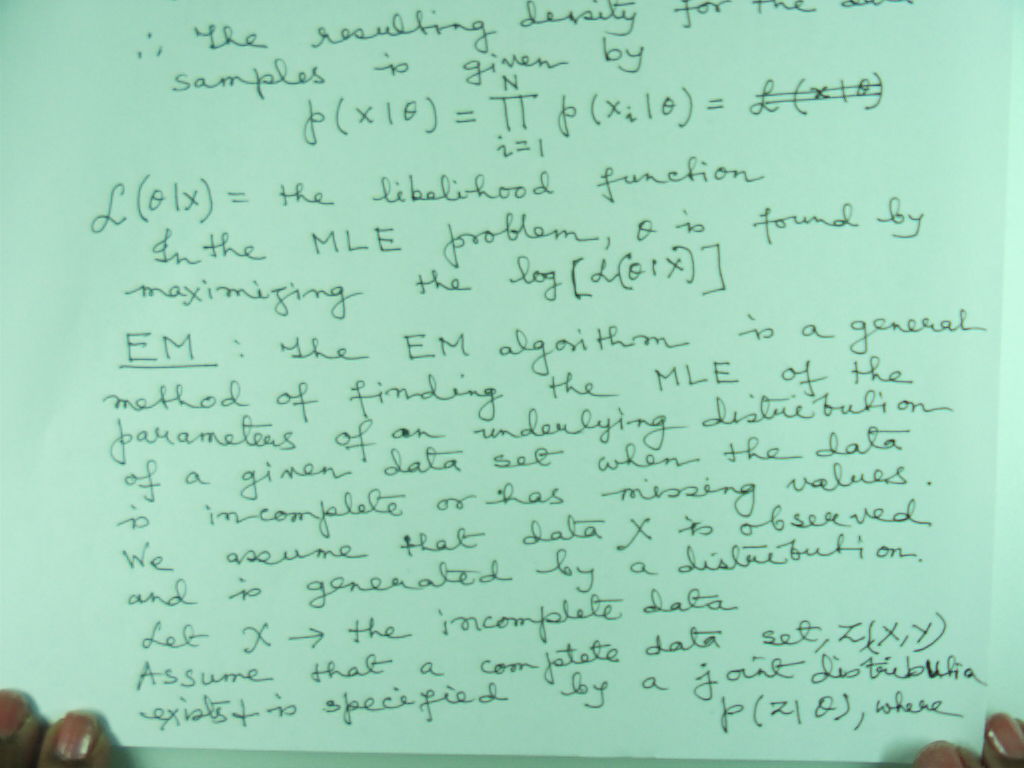 ∴ The resulting density for the
samples is given by
p(x|θ) = ∏_{i=1}^{N} p(x_i|θ) = ~~L(x|θ)~~
L(θ|x) = the likelihood function
In the MLE problem, θ is found by
maximizing the log[L(θ|X)]
EM : The EM algorithm is a general
method of finding the MLE of the
parameters of an underlying distribution
of a given data set when the data
is incomplete or has missing values.
We assume that data X is observed
and is generated by a distribution.
Let X → the incomplete data
Assume that a complete data set, Z(X,Y)
exists & is specified by a joint distribution
p(z|θ), where